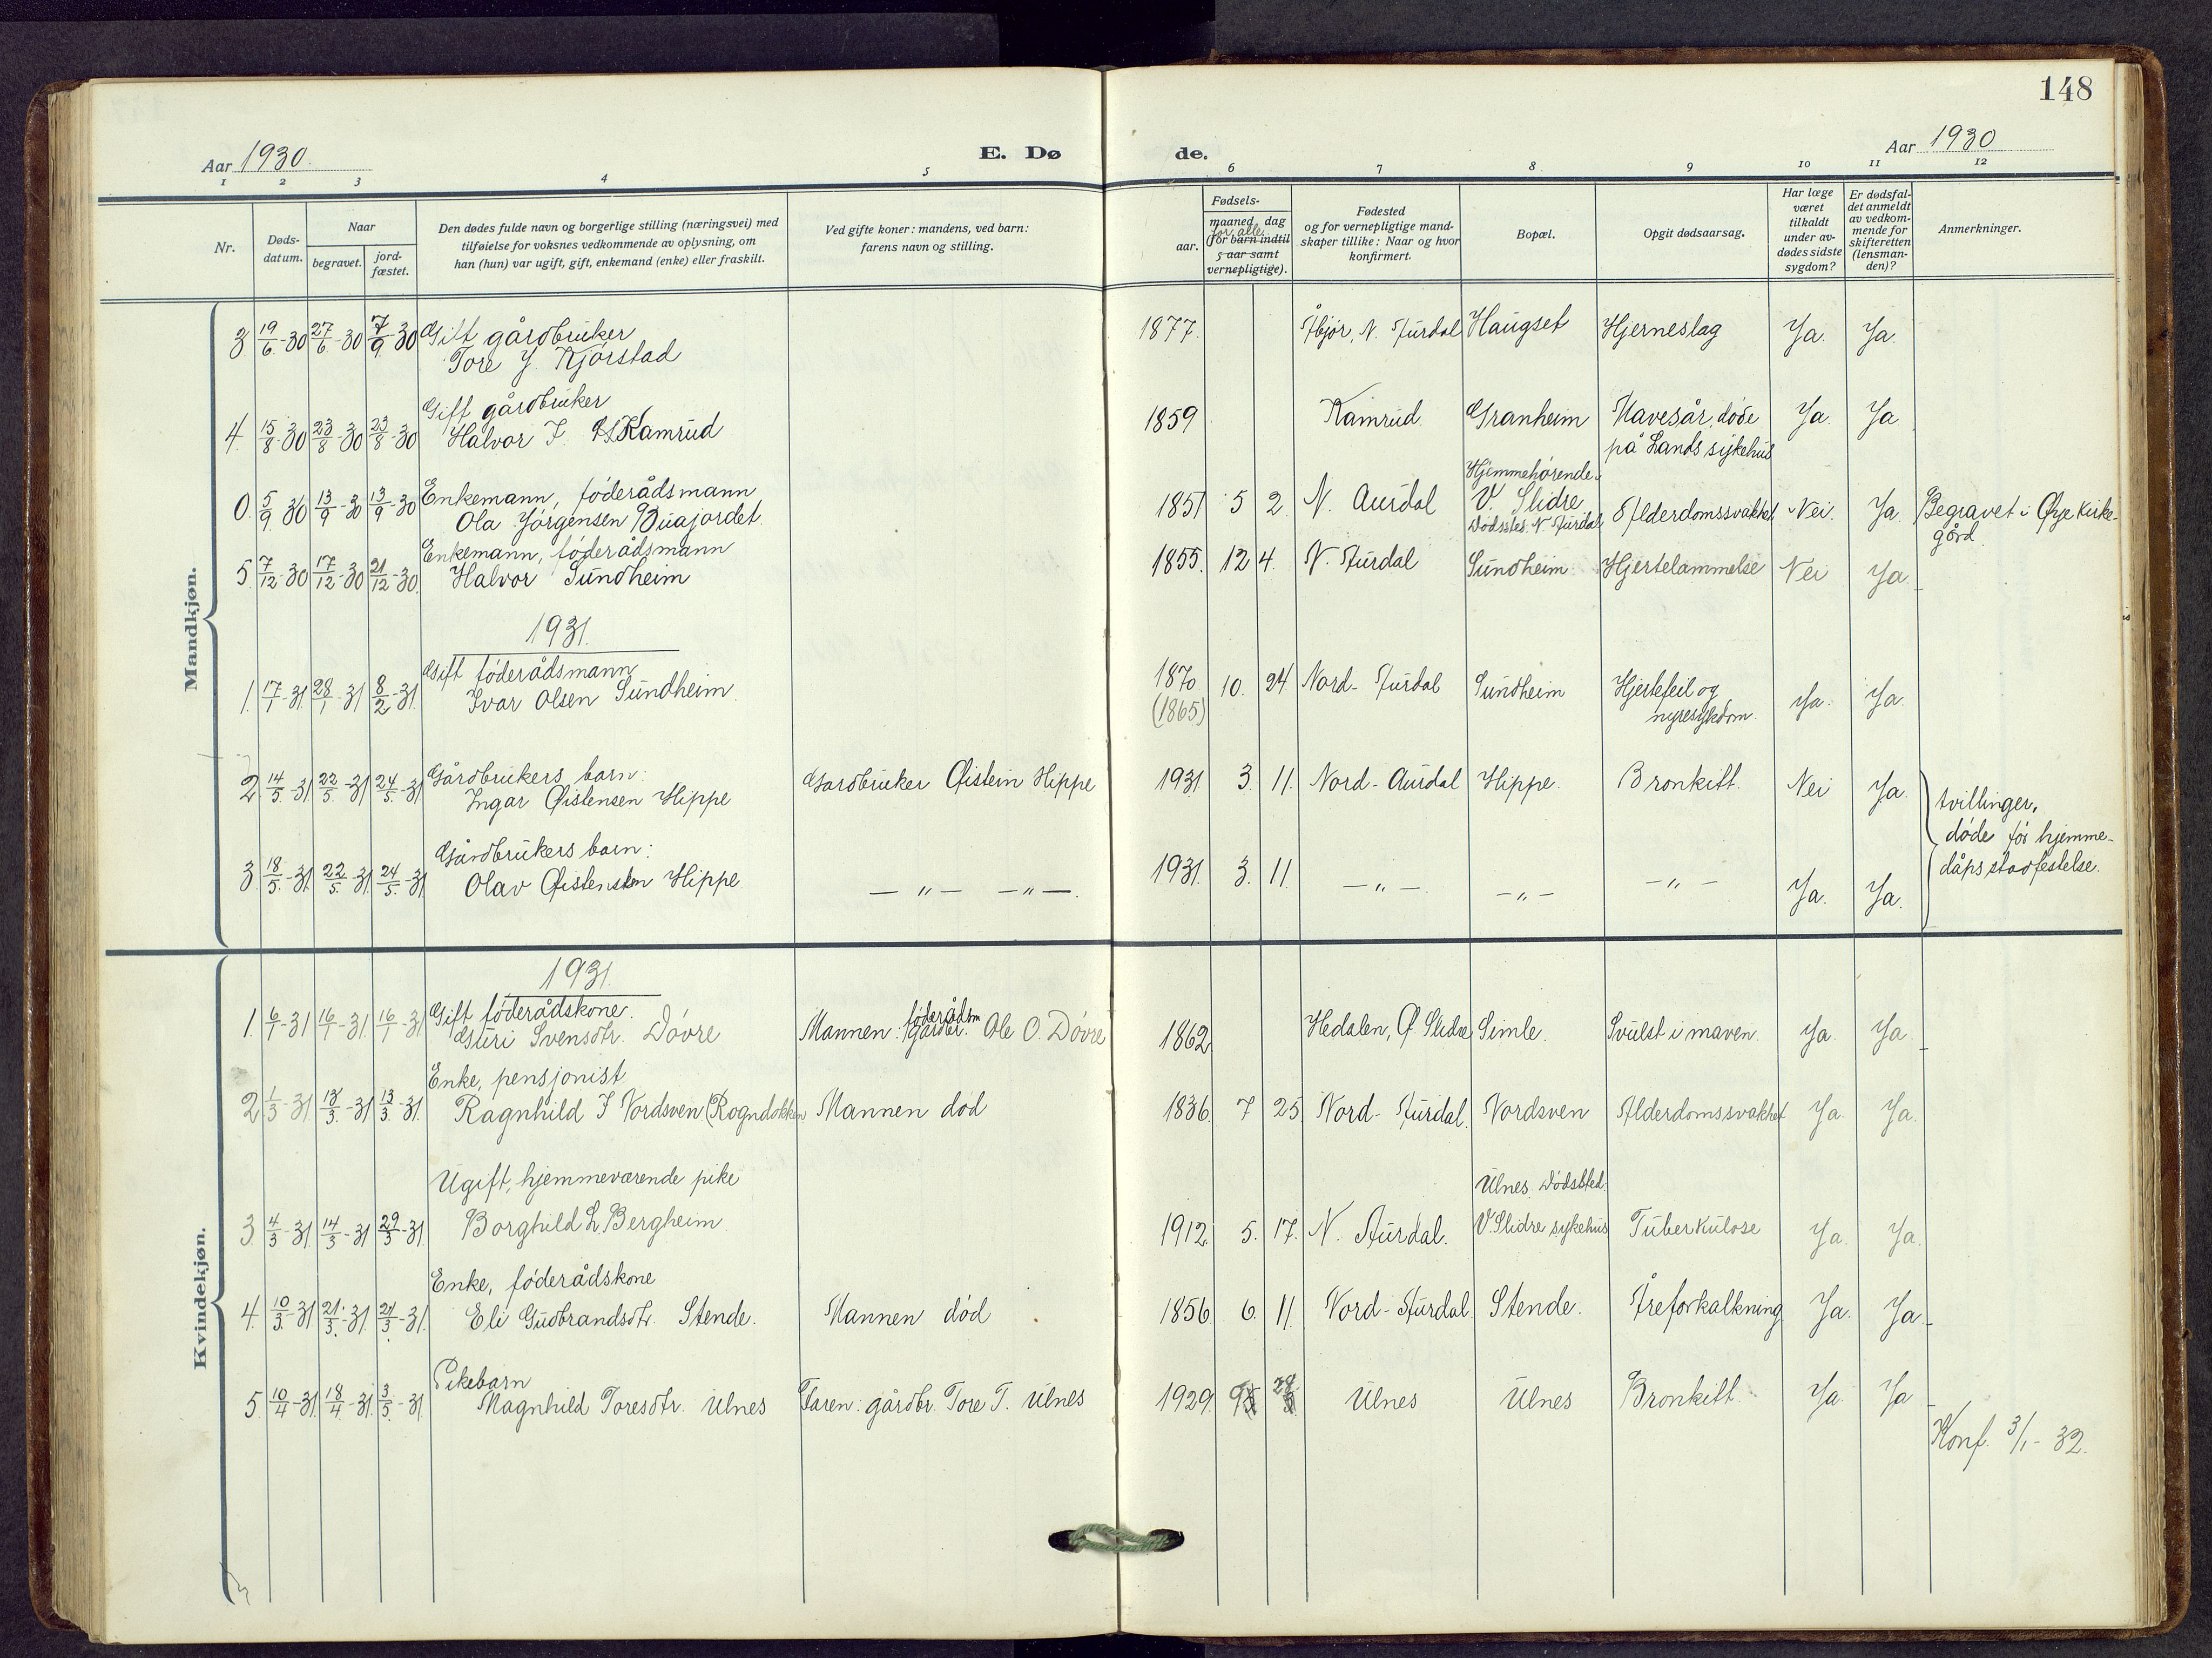 148
Aar 1930.
E. Dø
de.
Aar 1930
1 2 3 4 5 6 7 8 9 10 11 12
Nr.
Døds-
datum.
Naar
begravet.
jord-
fæstet.
Den dødes fulde navn og borgerlige stilling (næringsvei) med
tilføielse for voksnes vedkommende av oplysning, om
han (hun) var ugift, gift, enkemand (enke) eller fraskilt.
Ved gifte koner: mandens, ved barn:
farens navn og stilling.
Fødsels-
aar.
maaned dag
for alle
(for barn indtil
5 aar samt
vernepligtige).
Fødested
og for vernepligtige mand-
skaper tillike: Naar og hvor
konfirmert.
Bopæl.
Opgit dødsaarsag.
Har læge
været
tilkaldt
under av-
dødes sidste
sygdom?
Er dødsfal-
det anmeldt
av vedkom-
mende for
skifteretten
(lensman-
den)?
Anmerkninger.
Mandkjøn.
3 19/6-30 27/6-30 7/9-30 Gift gårdbruker
Tore J. Kjørstad 1877. Åbjør, N. Aurdal Haugset Hjerneslag Ja. Ja.
4 15/8-30 23/8-30 23/8-30 Gift gårdbruker
Halvor J. Kamrud 1859 Kamrud. Granheim Mavesår, døde
på Lands sykehus Ja. Ja
0. 5/9-30 13/9-30 13/9-30 Enkemann, føderådsmann
Ola Jørgensen Buajordet. 1851 5 2. N. Aurdal Hjemmehørende i
V. Slidre
Dødssted N. Aurdal Alderdomssvakhet Nei. Ja. Begravet i Øye kirke-
gård
5. 7/12-30 17/12-30 21/12-30. Enkemann, føderådsmann
Halvor Sundheim 1855. 12 4. N. Aurdal Sundheim Hjertelammelse Nei Ja.
1931.
1. 17/1-31 28/1-31 8/2-31. Gift føderådsmann
Ivar Olsen Sundheim. 1870
(1865) 10. 24 Nord-Aurdal Sundheim Hjertefeil og
nyresykdom. Ja. Ja.
2. 14/5-31 22/5-31 24/5-31 Gårdbrukers barn:
Ingar Øistensen Hippe Gardbruker Øistein Hippe 1931. 3. 11. Nord-Aurdal Hippe. Bronkitt. Nei Ja. tvillinger,
døde før hjemme-
dåps stadfestelse.
3. 18/5-31. 22/5-31 24/5-31 Gårdbrukers barn:
Olav Øistensen Hippe — „ — — „ —. 1931. 3. 11. — „ —. — „ — — „ — Ja. Ja.
Kvindekjøn.
1931.
1. 6/1-31 16/1-31. 16/1-31 Gift føderådskone.
Guri Svensdtr. Døvre Mannen: føderådsm Ole O. Døvre 1862 Hedalen, Ø. Slidre Simle. Svulst i maven. Ja. Ja
2 1/3-31. 13/3-31 13/3-31. Enke, pensjonist
Ragnhild J Nordsven (Rogndokken Mannen død 1836. 7 25. Nord-Aurdal. Nordsven Alderdomssvakhet Ja. Ja.
3. 4/3-31. 14/3-31 29/3-31. Ugift, hjemmeværende pike
Borghild L. Bergheim 1912. 5. 17. N. Aurdal. Ulnes Dødssted.
V. Slidre sykehus Tuberkulose Ja. Ja.
4. 10/3-31 21/3-31 24/3-31. Enke, føderådskone
Eli Gudbrandsdtr. Stende. Mannen død 1856 6. 11. Nord-Aurdal Stende. Åreforkalkning Ja. Ja.
5. 10/4-31. 18/4-31. 3/5-31. Pikebarn
Magnhild Toresdtr. Ulnes Faren: gårdbr. Tore T. Ulnes 1929. 9 28 Ulnes Ulnes Bronkitt. Ja. Ja
Konf. 3/1-32.